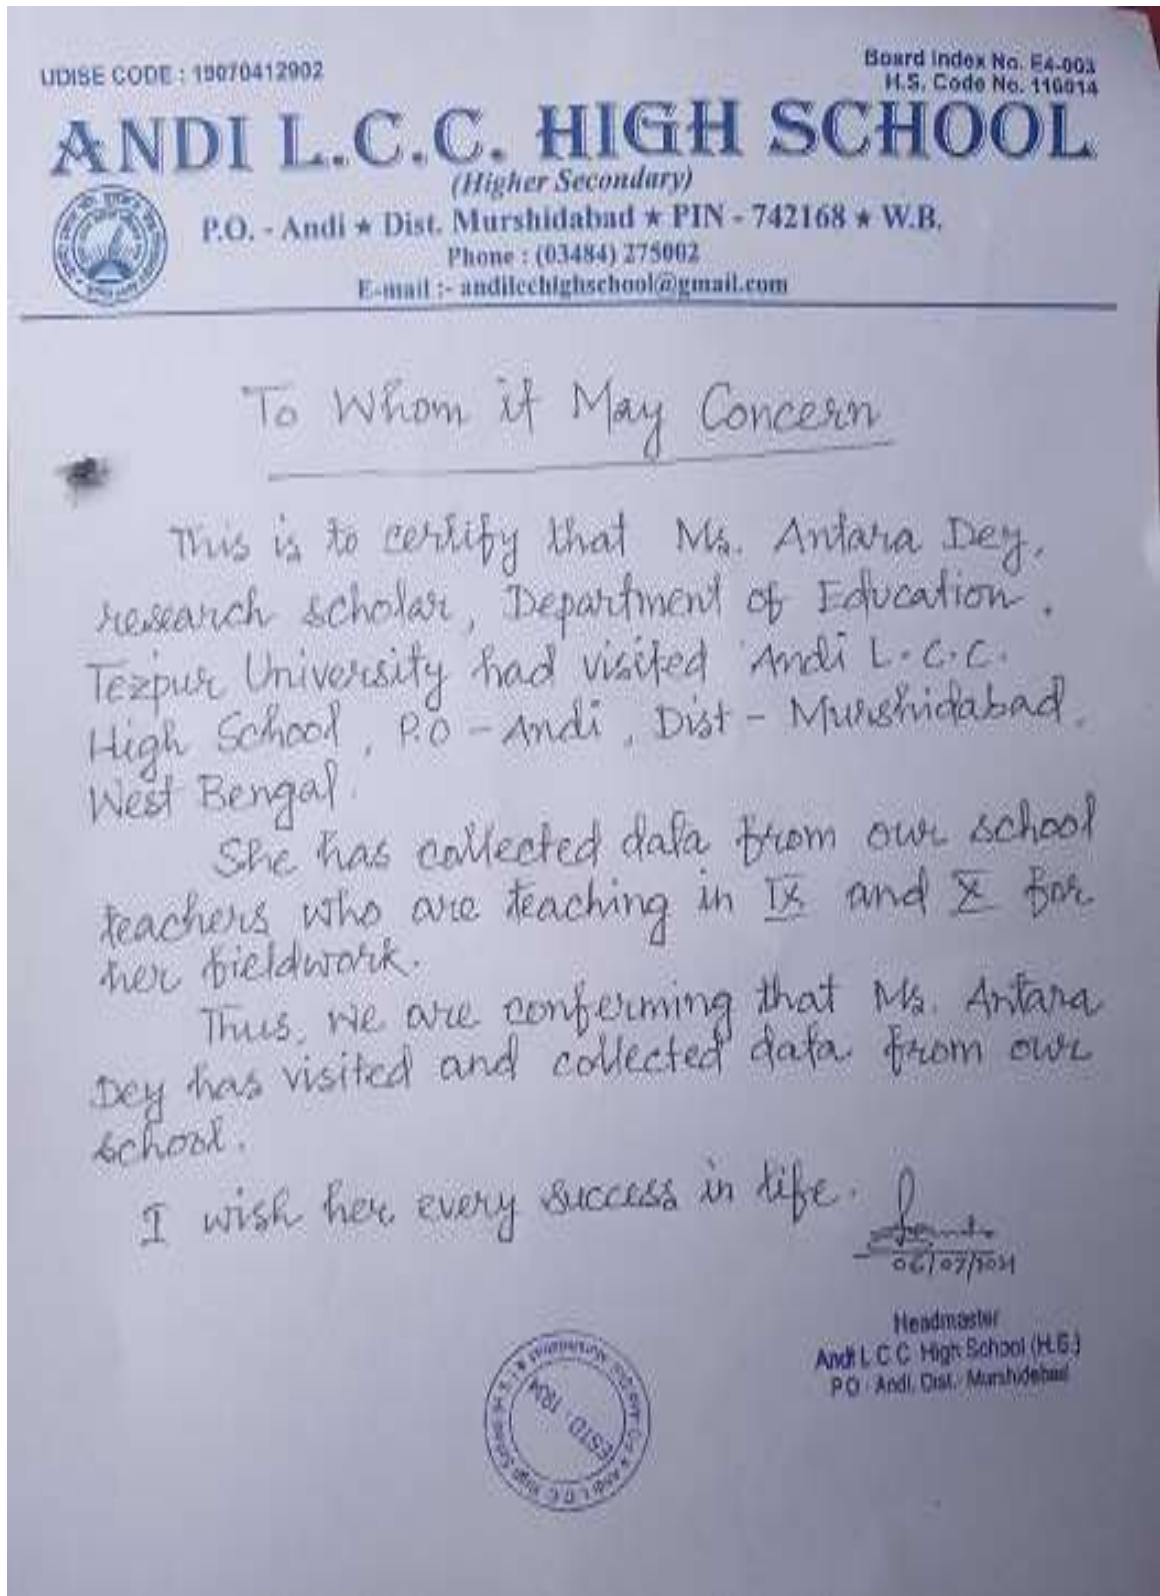 UDISE CODE : 19070412902
Board Index No. E4-003
H.S. Code No. 110014
ANDI L.C.C. HIGH SCHOOL
(Higher Secondary)
P.O. - Andi ★ Dist. Murshidabad ★ PIN - 742168 ★ W.B.
Phone : (03484) 275002
E-mail :- andilcchighschool@gmail.com
To Whom it May Concern
This is to certify that Ms. Antara Dey,
research scholar, Department of Education,
Tezpur University had visited Andi L.C.C.
High School, P.O - Andi, Dist - Murshidabad,
West Bengal.
She has collected data from our school
teachers who are teaching in IX and X for
her fieldwork.
Thus, we are conferming that Ms. Antara
Dey has visited and collected data from our
school.
I wish her every success in life.
Headmaster
Andi L C C High School (H.S.)
P.O - Andi, Dist.- Murshidabad
ESTD -